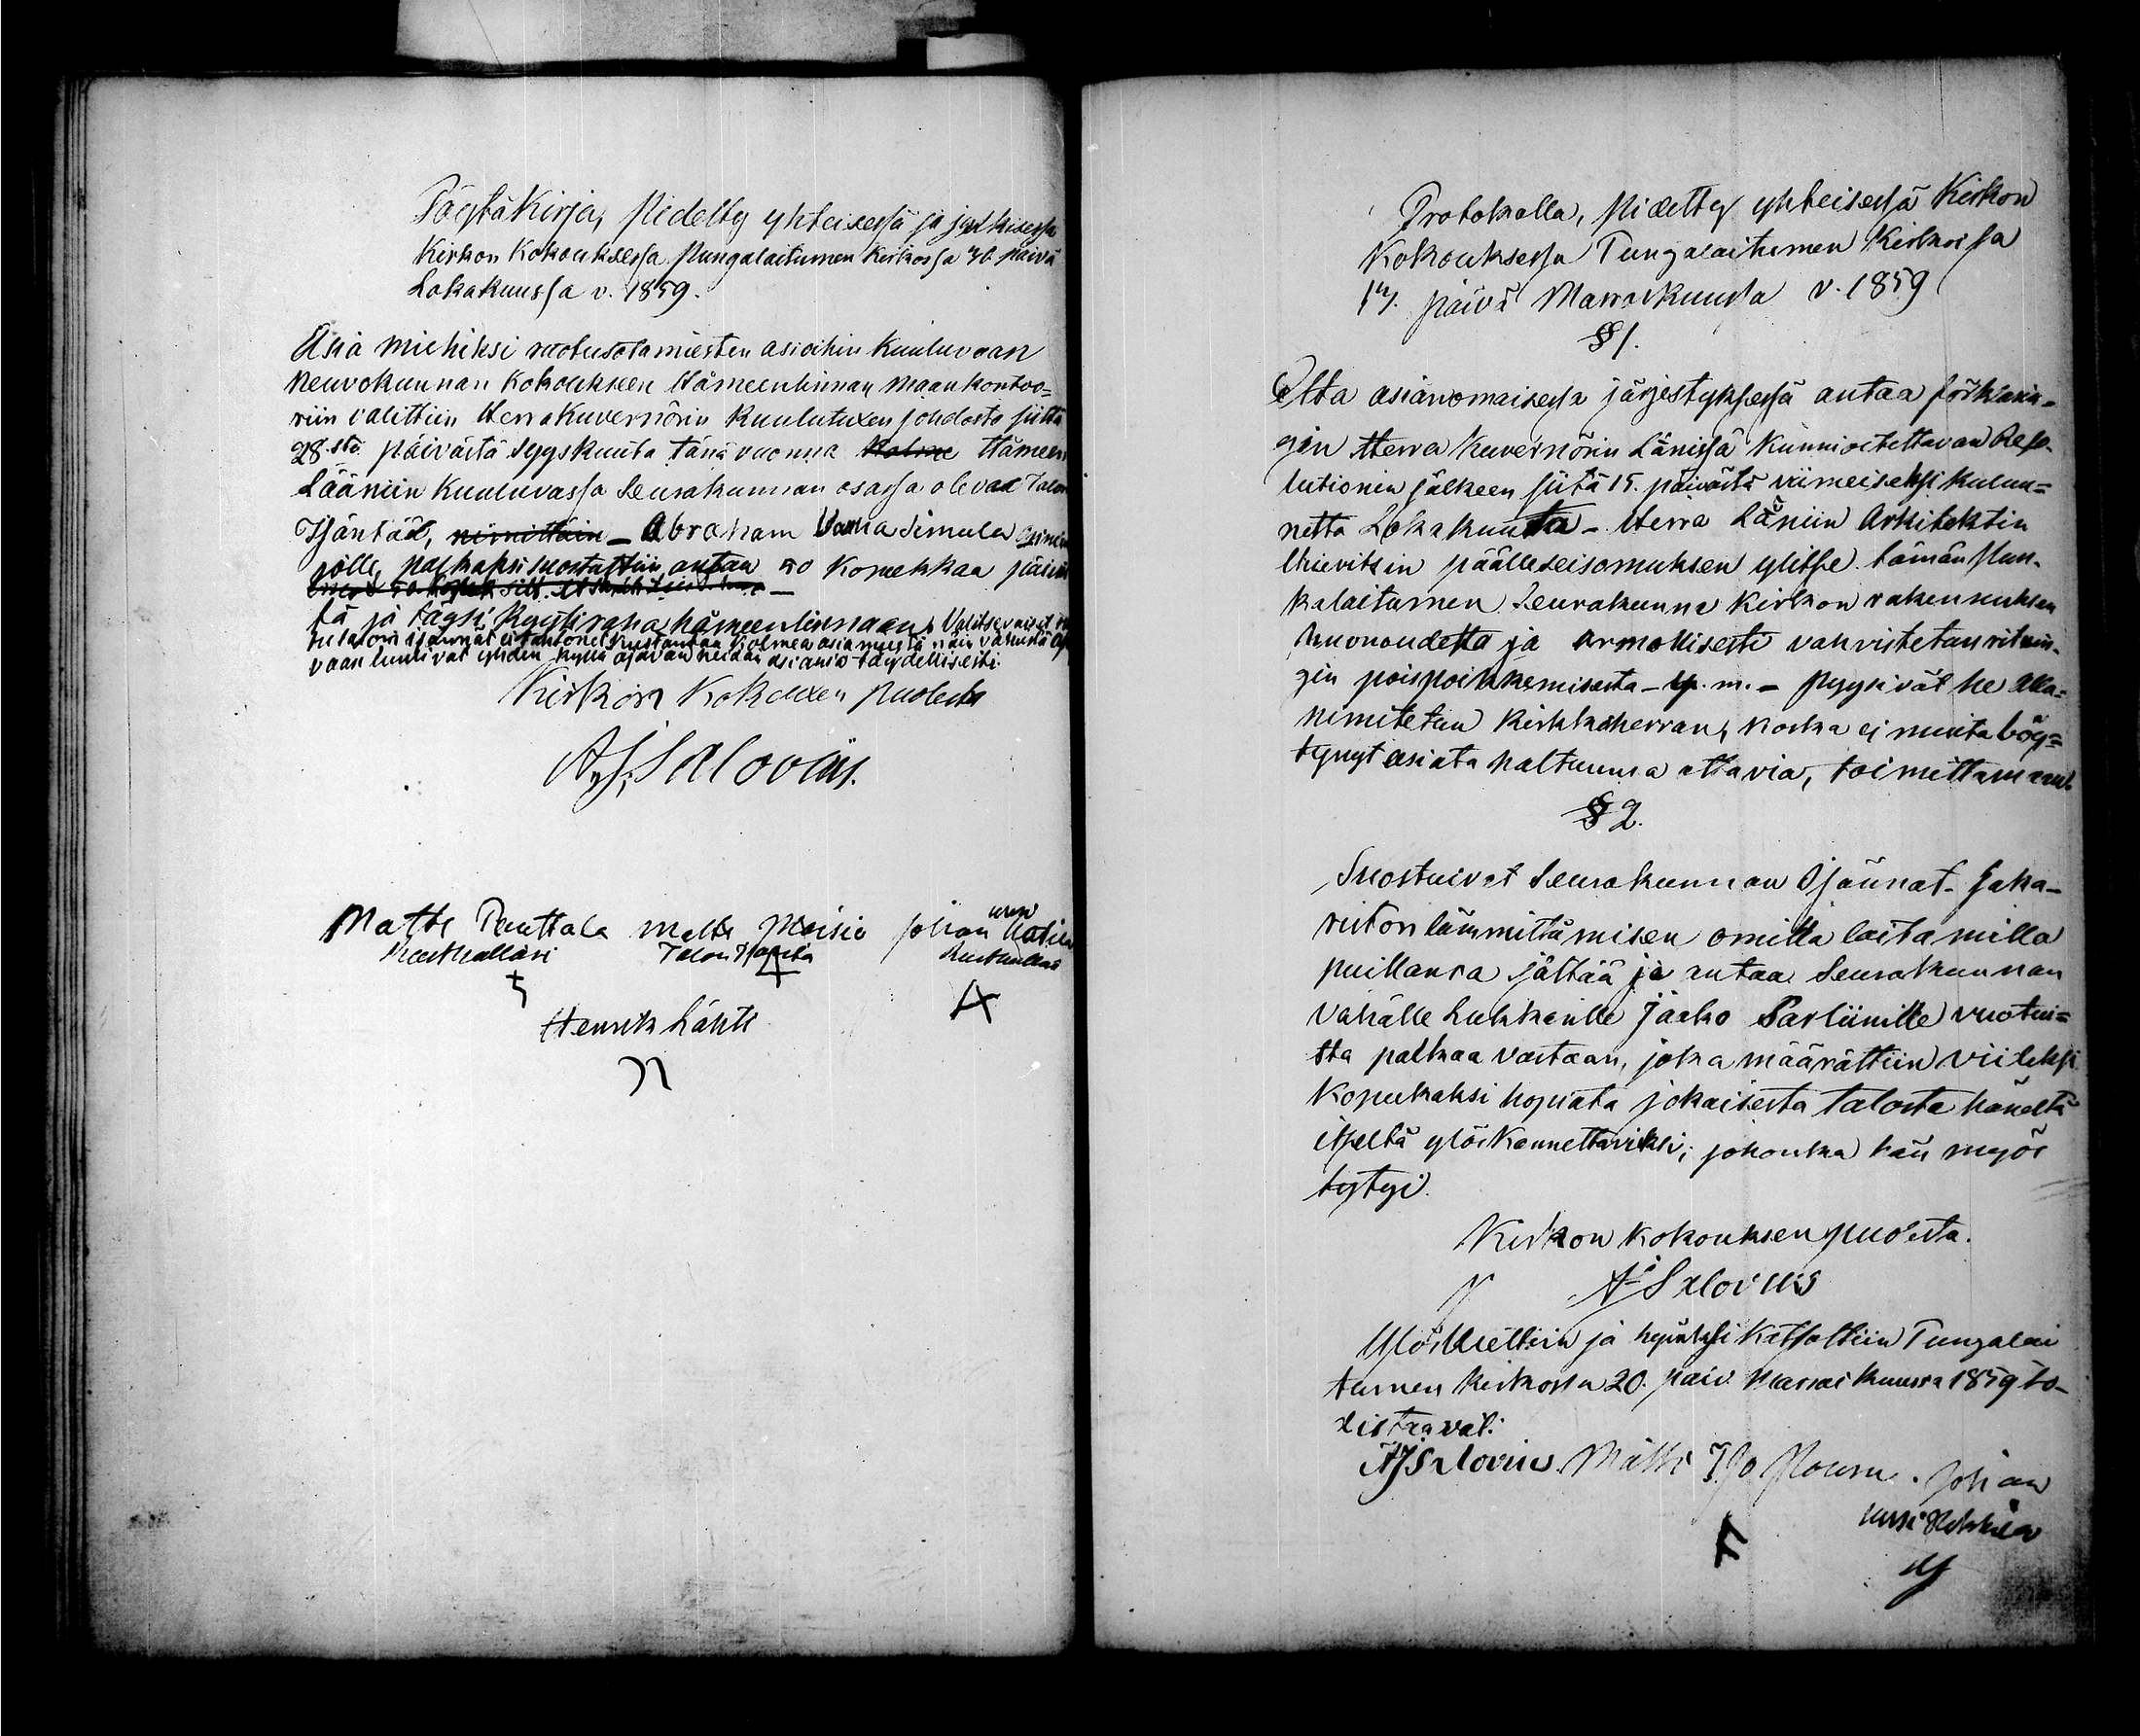 Pöytäkirja, Pidetty yhteisessä ja julkisessa
Kirkon Kokouksessa Pungalaitumen Kirkossa päivä
Lokakuussa v. 1859.
Asia miehiksi ruotusotamiesten asioihin Kuuluvaan
neuvokunnan Kokoukseen Hämeenlinnan Maankontoo=
riin valittiin Herra Kuvernörin Kuulutuxen johdosta siitä
28.sta päivästä Syyskuuta tänä vuonna Hämeen
Lääniin Kuuluvassa Seurakunnan osassa olevad Talon
Isäntäd, nimittäin – Abraham Simula
jolle, palkaksi suostuttiin antaa 50 Kopekkaa päivä
tä ja täysi Kyytiraha hämeenlinnaan,
vaan luulivat yhden kyllä ajavan heidän asiansa täydellisesti
Kirkon Kokouxen puolesta
A. J. Salovius.
Matti Penttala Matti Maisia Johan
Rusthollari Talon Isäntä Rusthollari
Henrik Lähti
Protokolla, Pidetty yhteisessä Kirkon
Kokouksessa Pungalaitumen Kirkossa
päivä Marraskuussa v. 1859
§ 1.
Että asianomaisessa järjestyksessä antaa förklarin-
gin Herra Kuvernörin Länissä Kunnioitettavan Reso-
lutionin jälkeen siitä 15. päivästä viimeiseksi kulun=
netta Lokakuuta – Herra Läniin Arkitektin
päälleseisomuksen ylitse tämän Pun-
kalaitumen Seurakunna Kirkon rakennuksen
huonoudetta ja armollisesti vahvistetun ritnin-
gin poispoikkemisesta – y. m. – Pyysivät he alla=
nimitetun Kirkkoherran, koska ei muita löy=
tynyt asiata haltuunsa ottavia, toimittamaan.
§ 2.
Suostuivat Seurakunnan Isännät Saka-
ristion lämmittämisen omilla laitamilla
puillansa jättää ja antaa Seurakunnan
Vahalle Lukkarille Jaako Parliinille vuotui=
sta palkaa vastaan, joka määrättiin viideksi
Kopeekaksi hopiata jokaisesta talosta häneltä
itseltä ylöskannettaviksi; johonka hän myös
tytyi.
Kirkon Kokouksen puolesta.
A J Salovius
Ylösluettiin ja hyväksi Katsottiin Pungalai
tumen kirkossa 20. päiv. Marraskuussa 1859 to-
distaavat:
AJSalovius. Matti Iso Johan